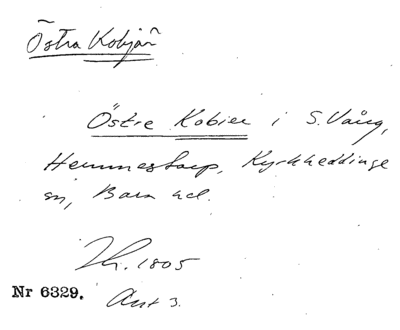 Östra Kobjär
Östre Kobier i S. Vång,
Hemmestorp, Kyrkheddinge
sn, Bara hd.
1805
Nr 6329. Akt 3.